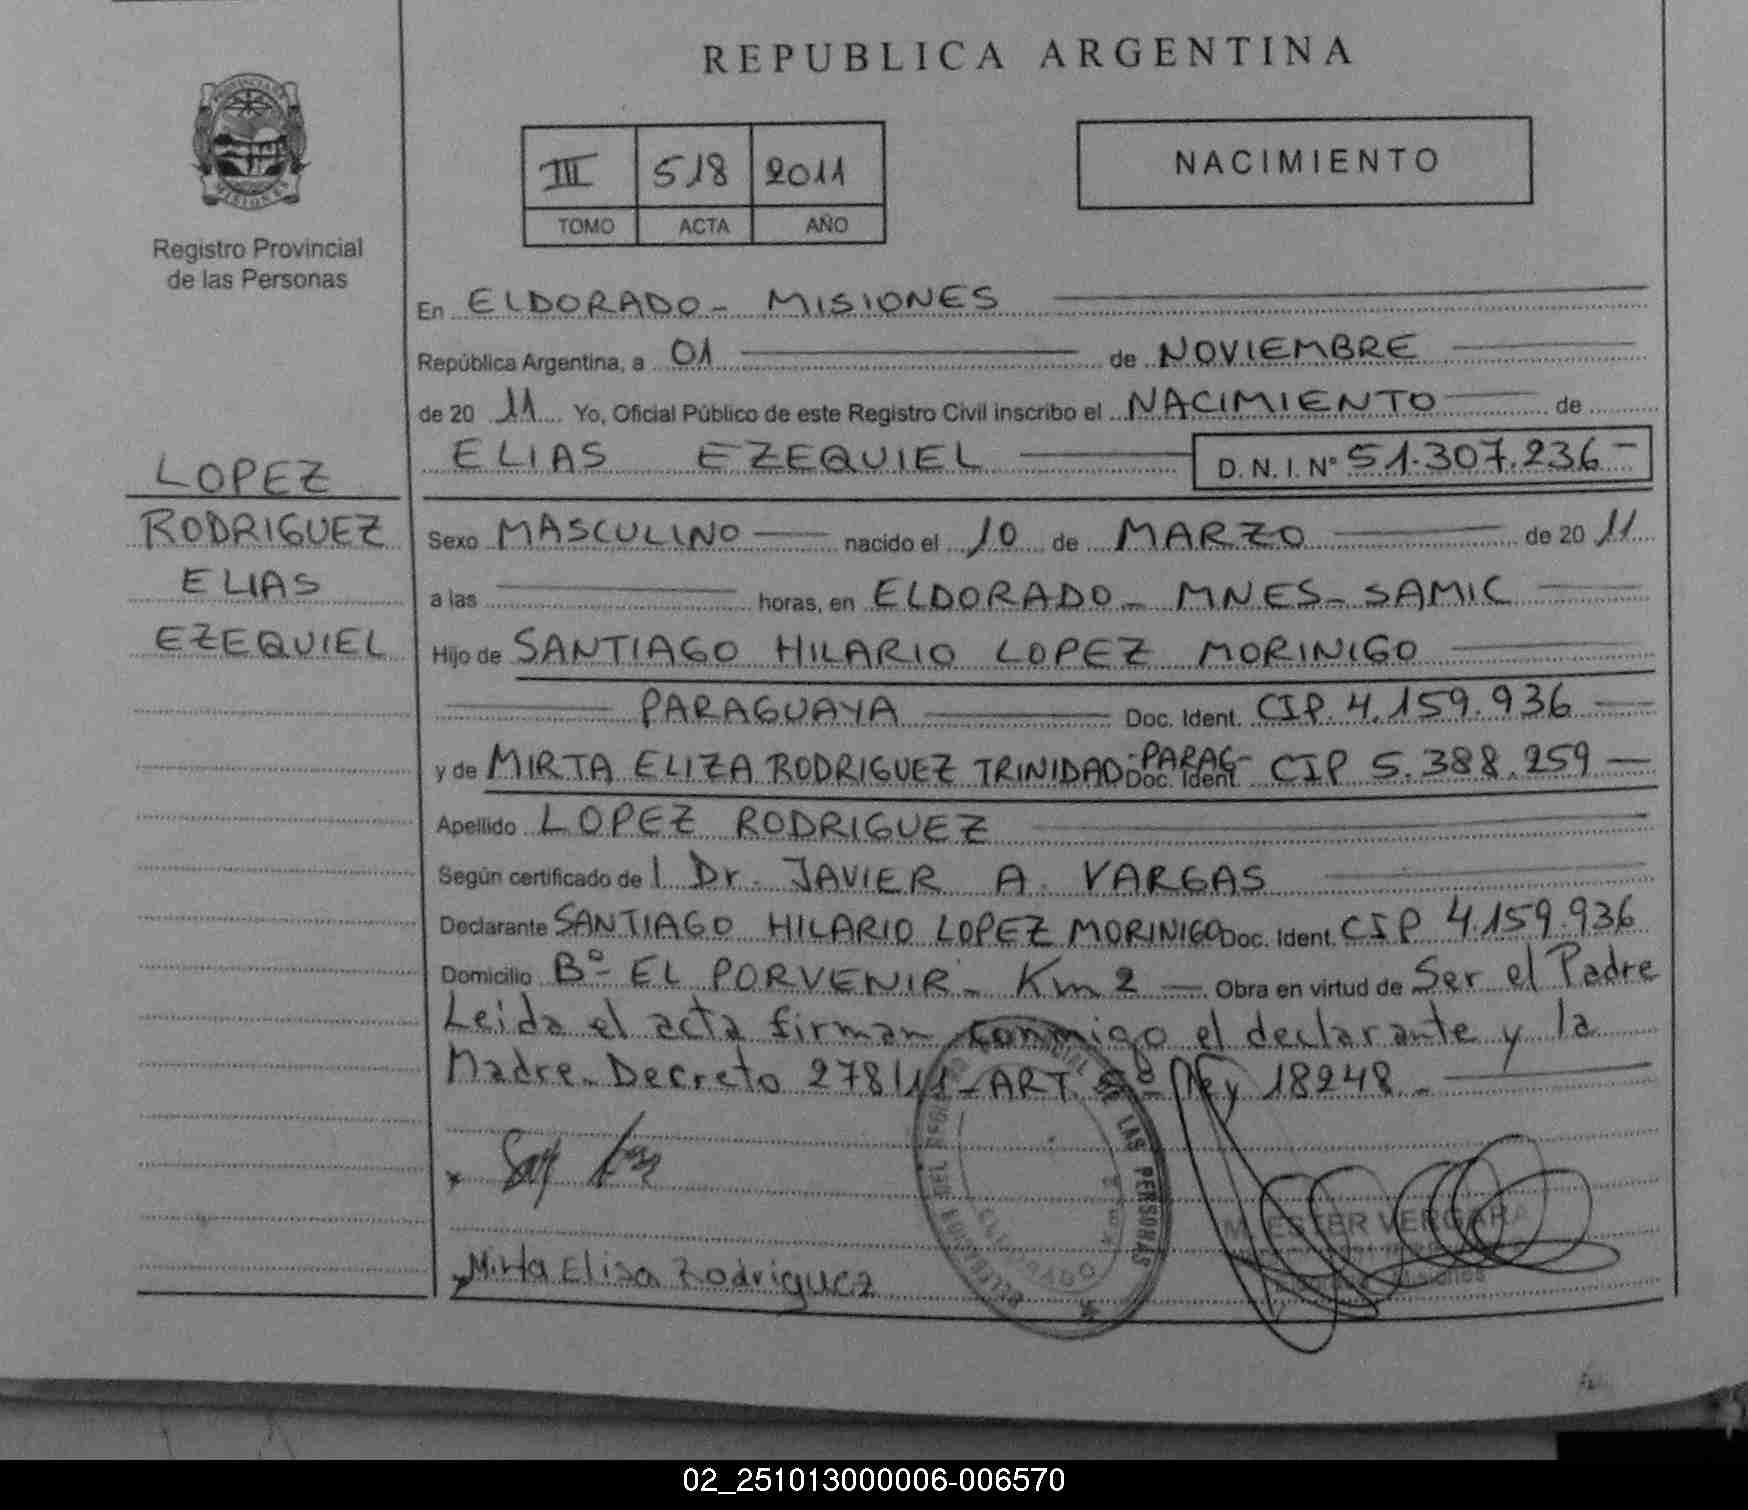 REPUBLICA ARGENTINA
PROVINCIA DE
MISIONES
Registro Provincial
de las Personas
III 518 2011
TOMO ACTA AÑO
NACIMIENTO
En ELDORADO - MISIONES
República Argentina, a 01 de NOVIEMBRE
de 20 11 Yo, Oficial Público de este Registro Civil inscribo el NACIMIENTO de
ELIAS EZEQUIEL D. N. I. Nº 51.307.236 -
LOPEZ
RODRIGUEZ
ELIAS
EZEQUIEL
Sexo MASCULINO nacido el 10 de MARZO de 20 11
a las horas, en ELDORADO - MNES - SAMIC
Hijo de SANTIAGO HILARIO LOPEZ MORINIGO
PARAGUAYA Doc. Ident. CIP. 4.159.936
y de MIRTA ELIZA RODRIGUEZ TRINIDAD - PARAG - Doc. Ident. CIP 5.388.259
Apellido LOPEZ RODRIGUEZ
Según certificado de l Dr. JAVIER A. VARGAS
Declarante SANTIAGO HILARIO LOPEZ MORINIGO Doc. Ident. CIP 4.159.936
Domicilio Bº - EL PORVENIR - Km 2 Obra en virtud de Ser el Padre
Leida el acta firman conmigo el declarante y la
Madre. Decreto 278/11 - ART. Ley 18248 -
Mirta Elisa Rodriguez
DE LAS PERSONAS
M. ESTER VERGARA
Misiones
02_251013000006-006570